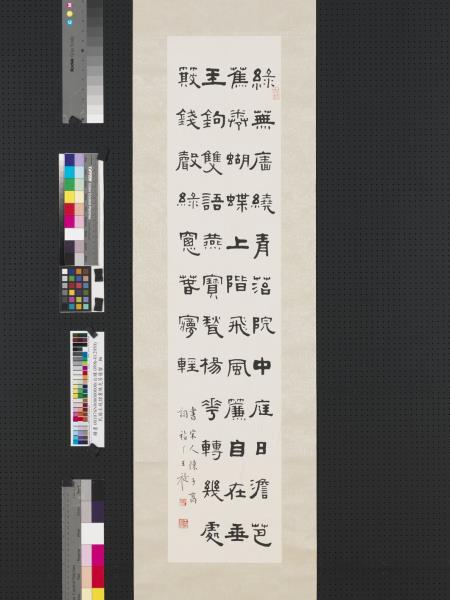 綠蕪牆繞青苔院中庭日澹芭
蕉卷蝴蝶上階飛風簾自在垂
玉鉤雙語燕寶甃楊花轉幾處
簸錢聲綠窗春夢輕
書宋人陳子高
詞福厂王禔